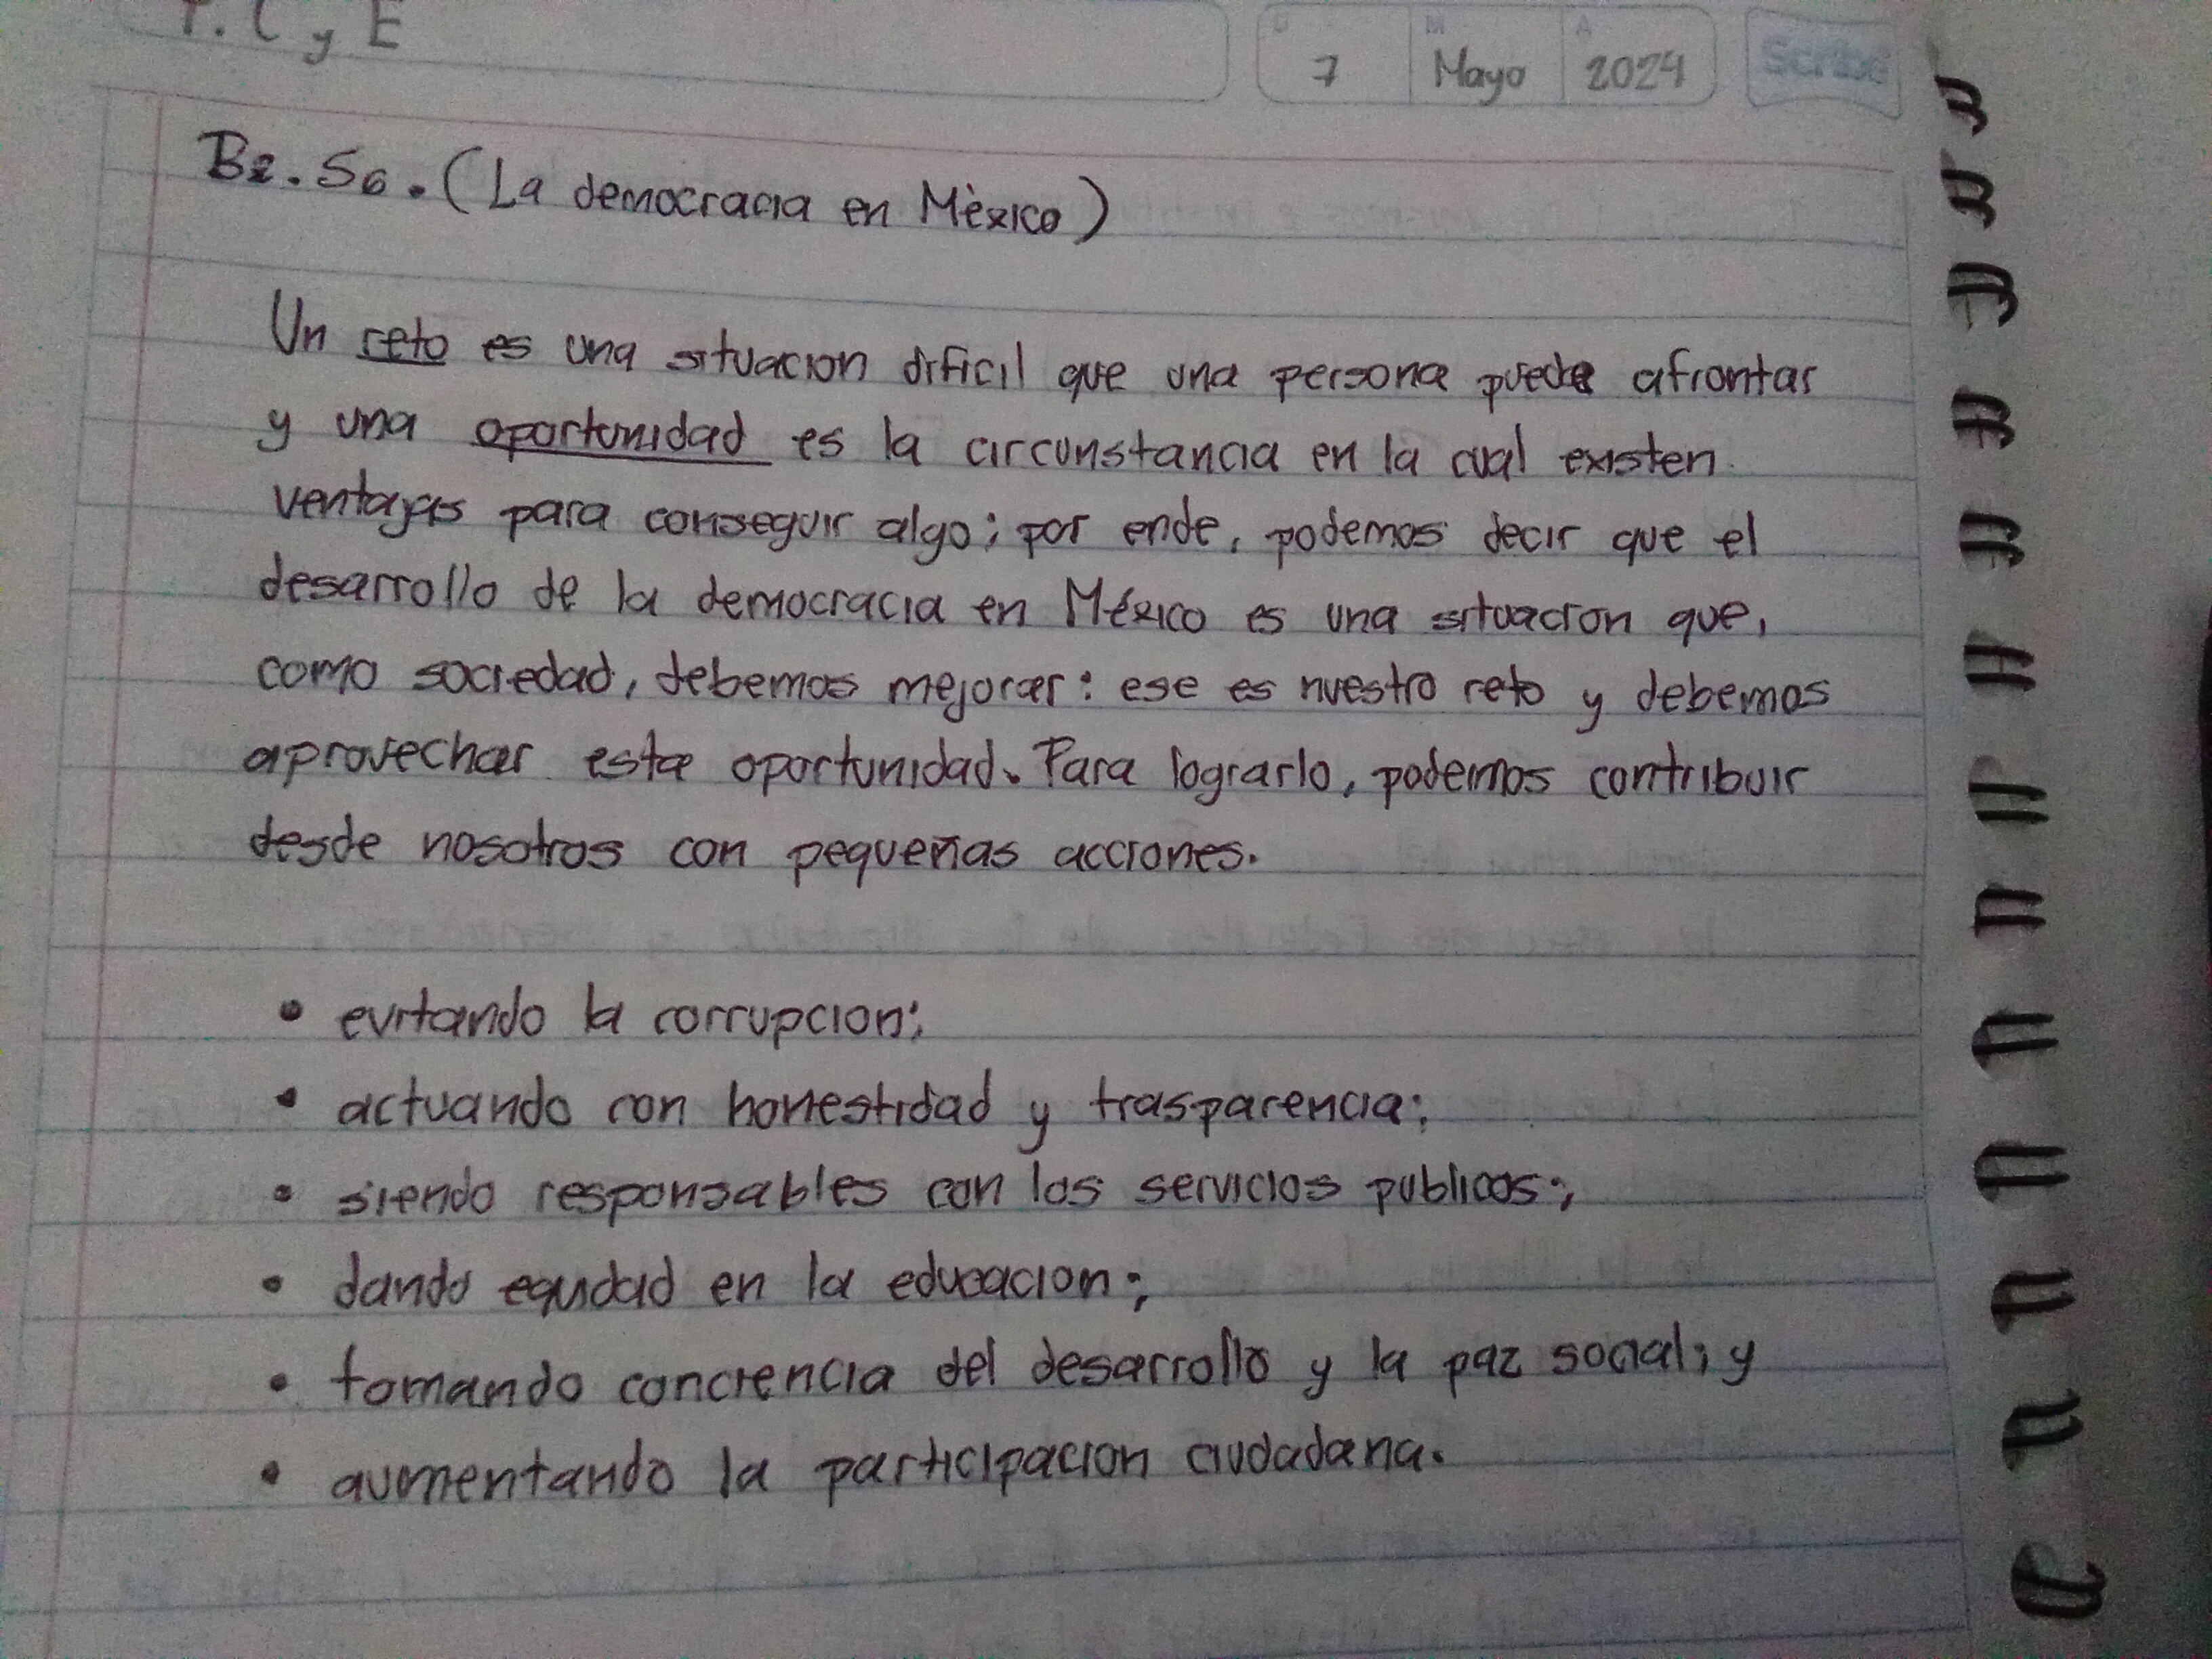 F. C y E
7 Mayo 2024 Scribe
B2. S6. (La democracia en Mèxico)
Un reto es una situacion dificil que una persona puede afrontar
y una oportunidad es la circunstancia en la cual existen
ventajas para conseguir algo; por ende, podemos decir que el
desarrollo de la democracia en México es una situacion que,
como sociedad, debemos mejorar: ese es nuestro reto y debemos
aprovechar esta oportunidad. Para lograrlo, podemos contribuir
desde nosotros con pequeñas acciones.
• evitando la corrupcion;
• actuando con honestidad y trasparencia;
• siendo responsables con los servicios publicos;
• dando equidad en la educacion;
• tomando conciencia del desarrollo y la paz social; y
• aumentando la participacion ciudadana.